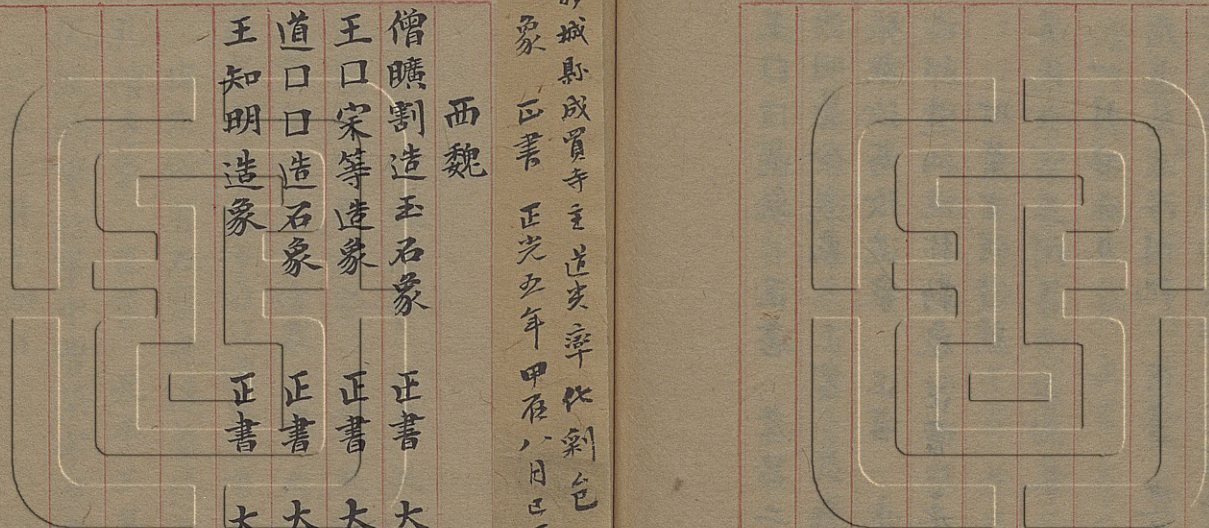 城縣成買寺主道
象 正書 正光五年甲辰八月
西魏
僧曠割造玉石象 正書 大
王口宋等造象 正書 大
道口口造石象 正書 大
王知明造象 正書 大